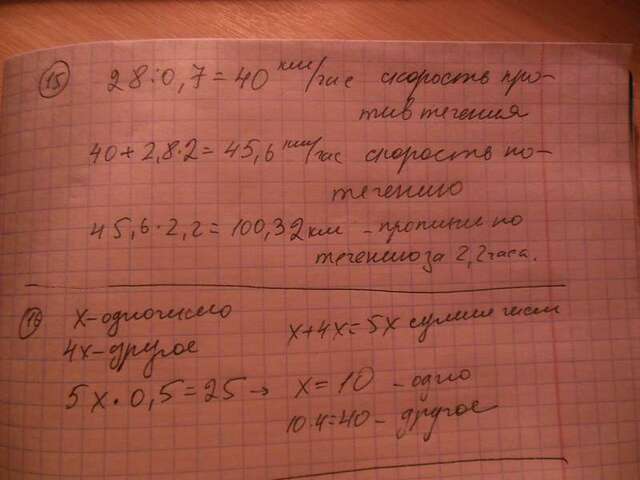 15 28:0,7=40 км/час скорость про-
тив течения
40+2,8·2=45,6 км/час скорость по-
течению
45,6·2,2=100,32 км - проплыли по
течению за 2,2 часа.
16 x-одно число
4x-другое
x+4x=5x сумма чисел
5x·0,5=25 → x=10 - одно
10·4=40 - другое